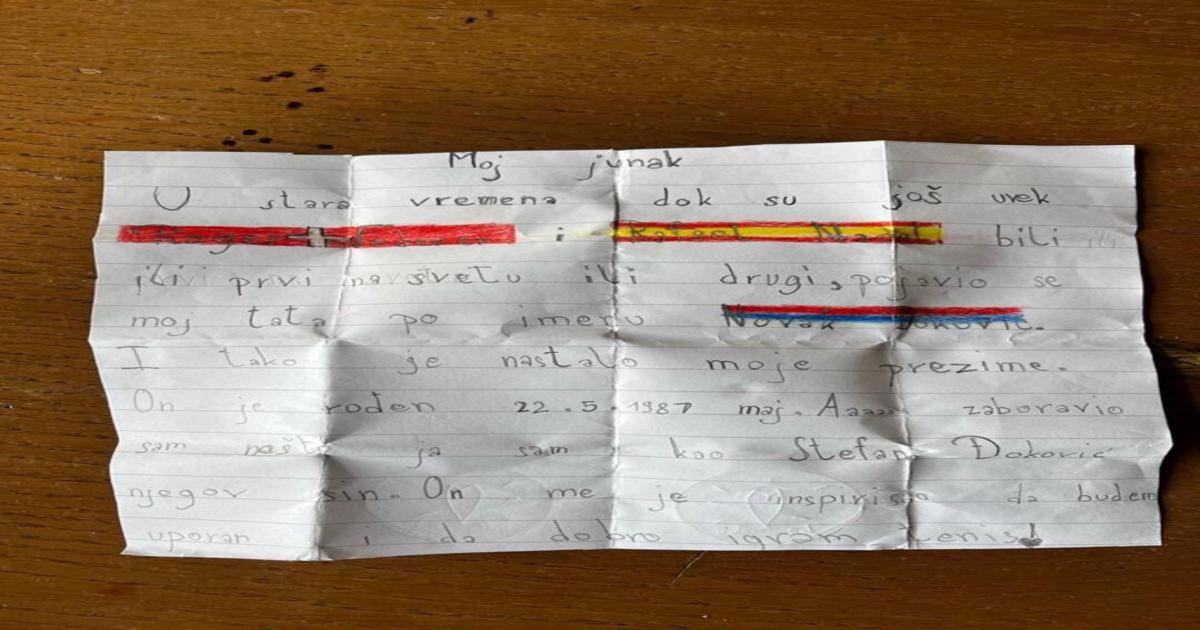 Moj junak
U stara vremena dok su još uvek
Roger Federer i Rafael Nadal bili
ili prvi na svetu ili drugi, pojavio se
moj tata po imenu Novak Đoković.
I tako je nastalo moje prezime.
On je rođen 22.5.1987 maj. Aaaaa zaboravio
sam nešto ja sam kao Stefan Đoković
njegov sin. On me je inspirisao da budem
uporan i da dobro igram tenis!